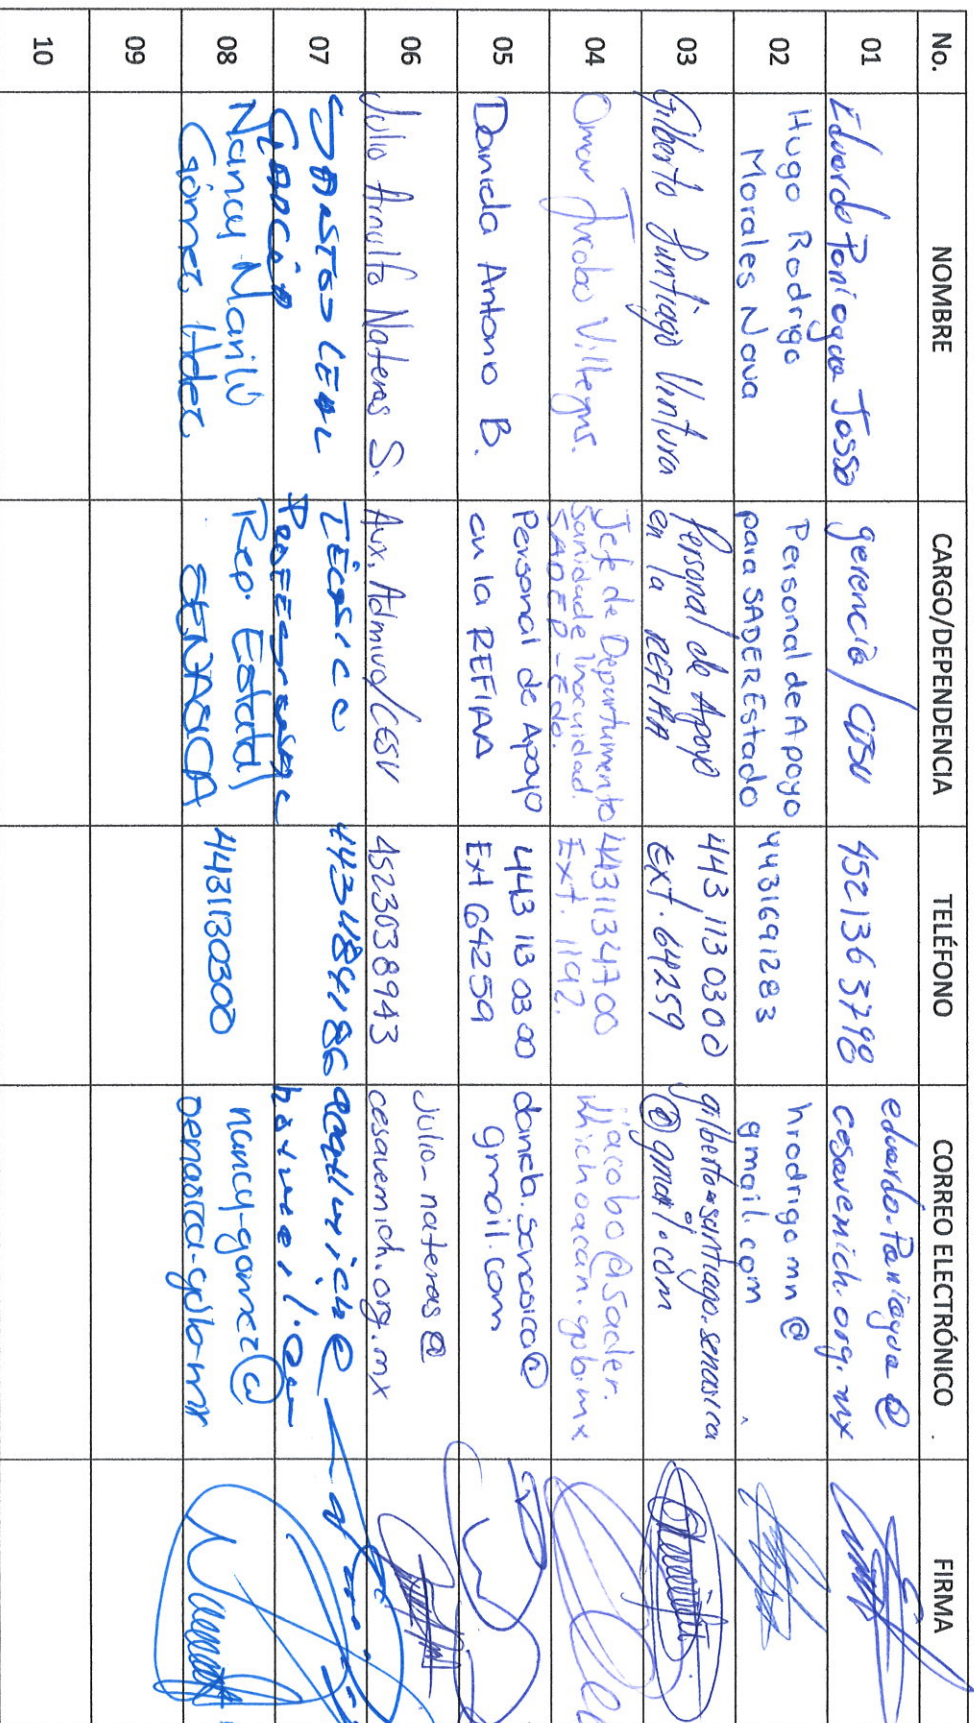 No. NOMBRE CARGO/DEPENDENCIA TELÉFONO CORREO ELECTRÓNICO FIRMA
01 Eduardo Paniagua Josso gerencia / CESV 4521363798 eduardo.Paniagua @
cesavemich.org.mx
02 Hugo Rodrigo
Morales Nava
Personal de Apoyo
para SADER Estado
4431691283
hrodrigomn @
gmail.com
03 Gilberto Santiago Ventura
Personal de Apoyo
en la REFIAA
443 113 0300
Ext. 64259
gilberto.santiago.senasica
@gmail.com
04 Omar Jacobo Villegas.
Jefe de Departamento
Sanidad e Inocuidad.
SADER - Edo.
4431134700
Ext. 1192.
jacobo@sader.
michoacan.gob.mx
05 Daniela Antonio B.
Personal de Apoyo
en la REFIAA
443 113 03 00
Ext 64259
daniela.senasica@
gmail.com
06 Julio Arnulfo Nateras S.
Aux. Admivo/CESV
4523038943
Julio_nateras@
cesavemich.org.mx
07 SANTOS LEAL
GARCIA
TÉCNICO
4434184186
08 Nancy Marilú
Gómez Hdez
Rep. Estatal
SENASICA
4431130300
nancy.gomez@
senasica.gob.mx
09
10